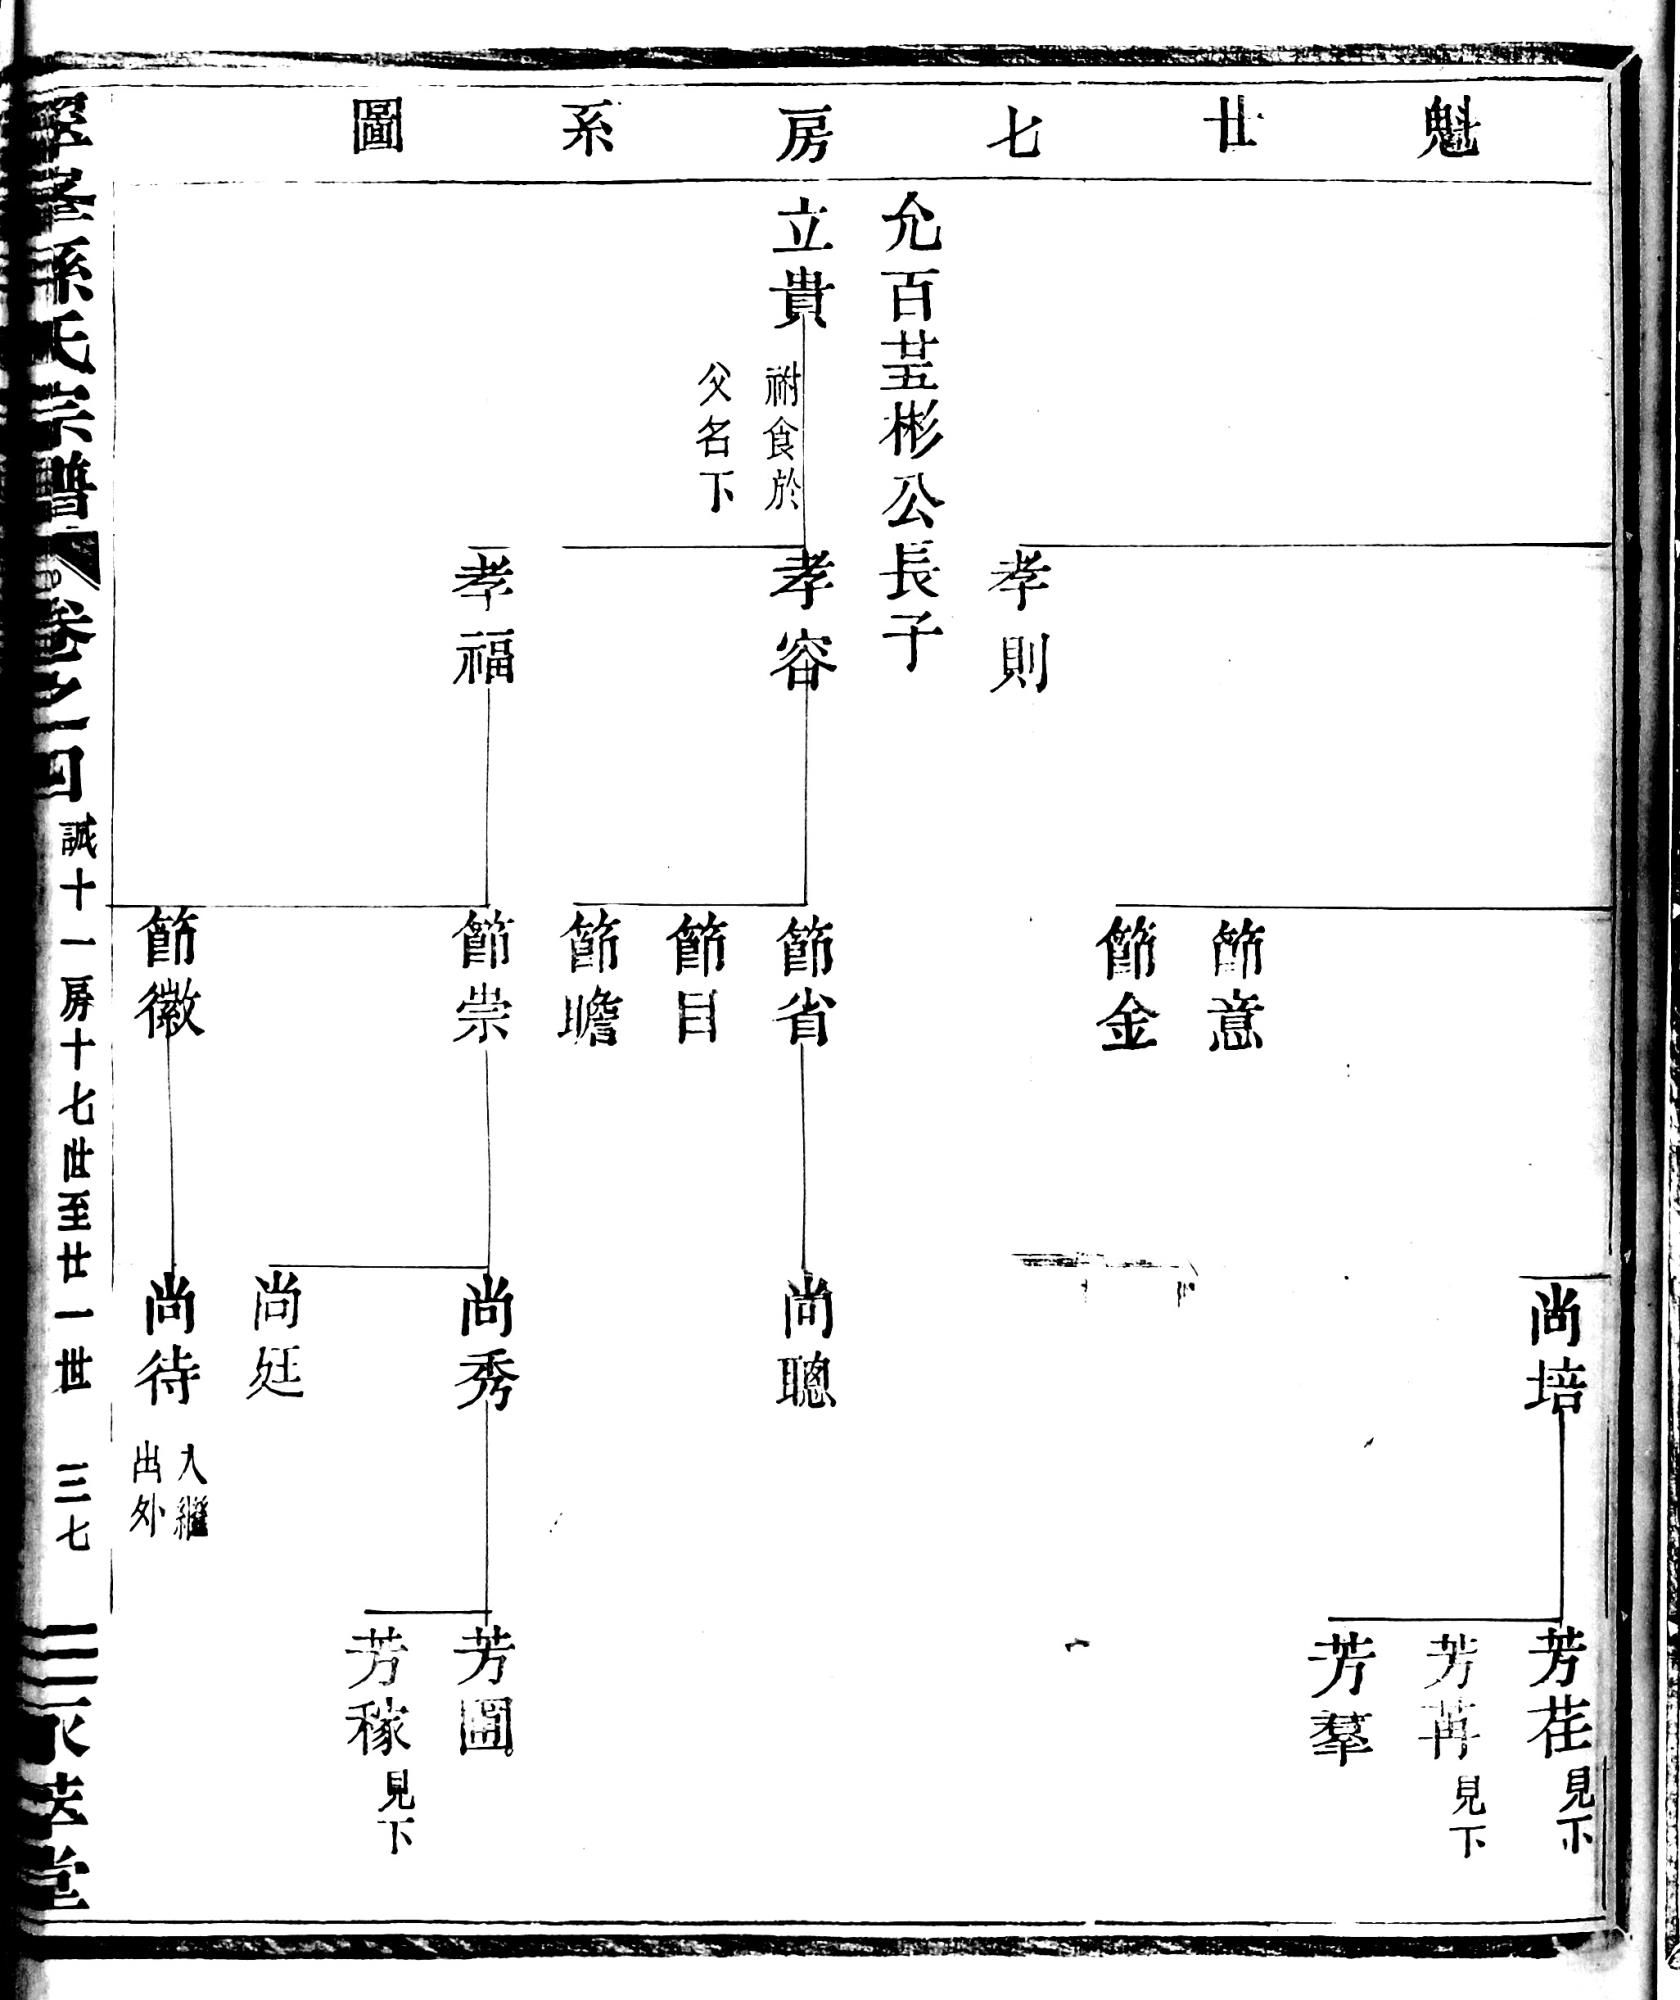 魁廿七房系圖
尚培
芳荏 見下
芳苒 見下
芳羣
節意
節金
孝則
允百廿五彬公長子
立貴
祔食於
父名下
孝容
節省
尚聰
節目
節瞻
孝福
節崇
尚秀
芳圖
芳稼 見下
尚廷
節徽
尚待
入繼
出外
孫氏宗譜 卷之四 誠十一房十七世至廿一世 三七
堂